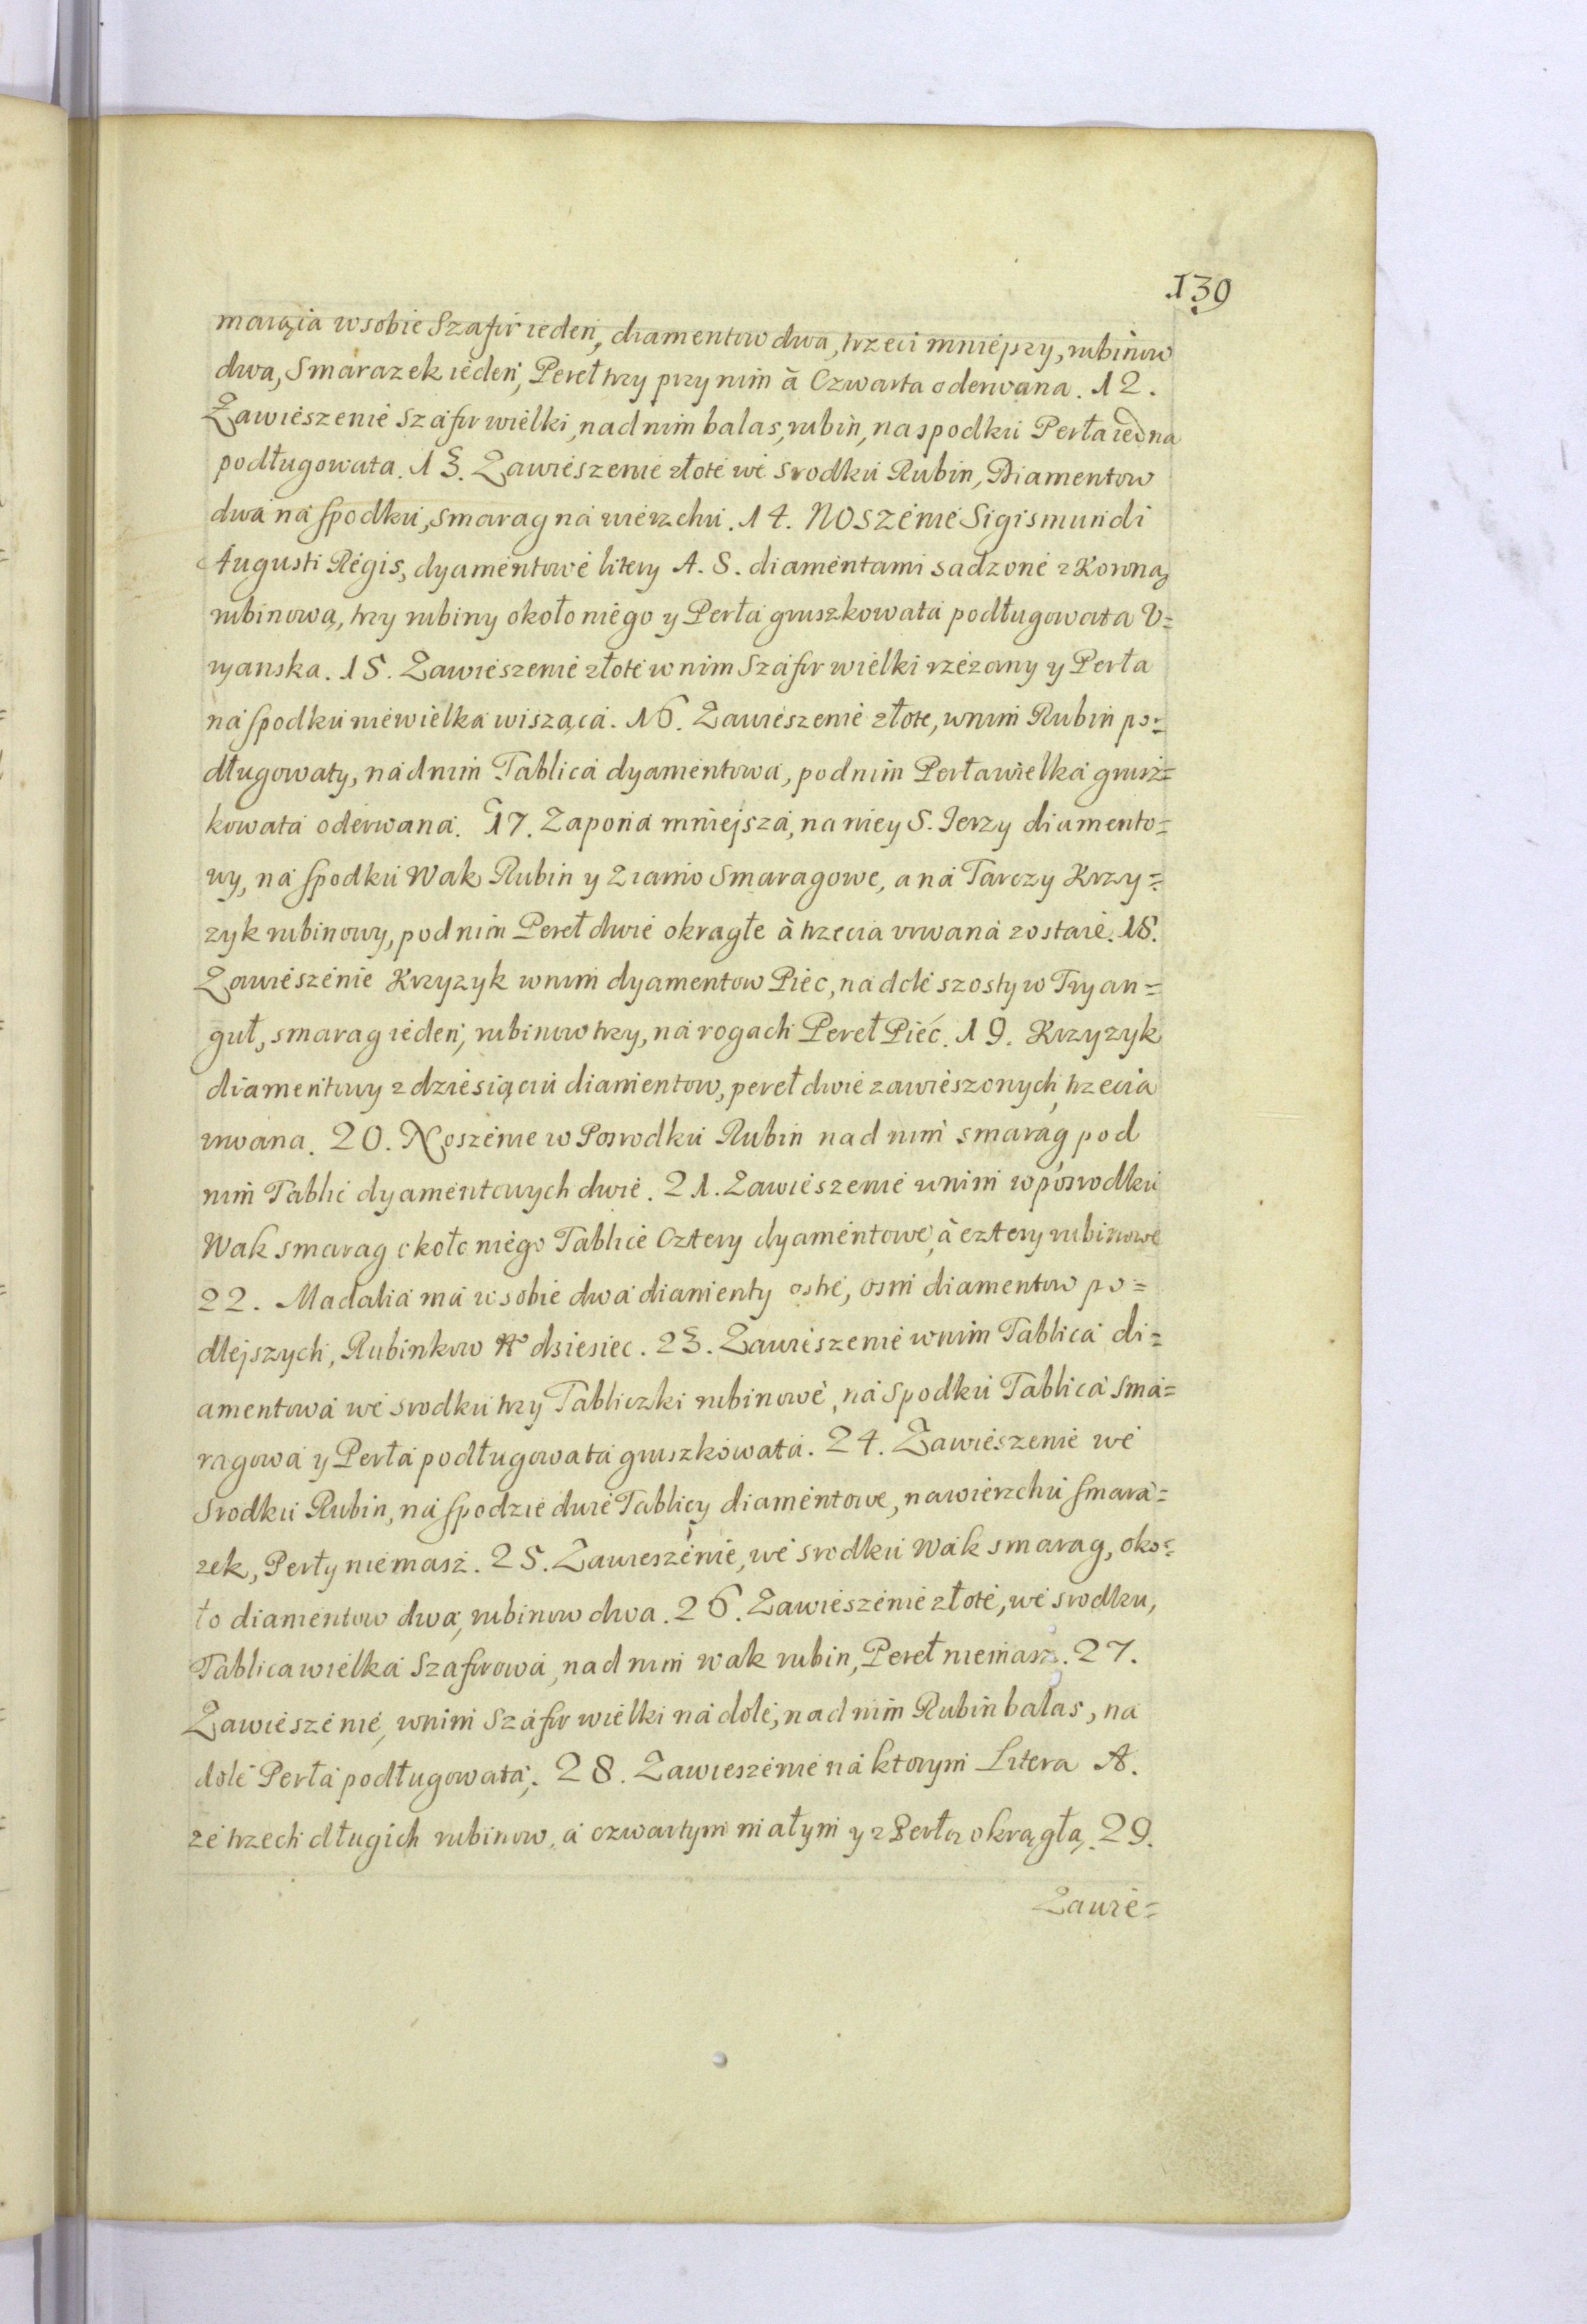 139
maiąia w sobie Szafir ieden, diamentow dwa, trzeci mniejszy, rubinow
dwa, Smarazek ieden, Pereł trzy przy nim à Czwarta oderwana. 12.
Zawieszenie Szafir wielki, nad nim balas, rubin, na spodku Perła iedna
podługowata. 13. Zawieszenie złote we srodku Rubin, Diamentow
dwa na spodku, smarag na wierzchu. 14. Noszenie Sigismundi
Augusti Regis, dyamentowe litery A. S. diamentami sadzone z Koroną
rubinową, trzy rubiny około niego y Perła gruszkowata podługowata V=
ryanska. 15. Zawieszenie złote w nim Szafir wielki rzezany y Perła
na spodku niewielka wisząca. 16. Zawieszenie złote, w nim Rubin po=
długowaty, nad nim Tablica dyamentowa, pod nim Perła wielka grusz=
kowata oderwana. 17. Zapona mniejsza, na niey S. Jerzy diamento=
wy, na spodku Wak Rubin y Ziarno Smaragowe, a na Tarczy Krzy=
zyk rubinowy, pod nim Pereł dwie okragłe à trzecia vrwana zostaie. 18.
Zawieszenie Krzyzyk w nim dyamentow Piec, na dole szosty w Tryan=
guł, smarag ieden, rubinow trzy, na rogach Pereł Pieć. 19. Krzyzyk
diamentowy z dziesiąciu diamentow, pereł dwie zawieszonych, trzecia
urwana. 20. Noszenie w Posrodku Rubin nad nim smarag, pod
nim Tablic dyamentowych dwie. 21. Zawieszenie w nim w posrodku
Wak smarag około niego Tablice Cztery dyamentowe, à cztery rubinowe
22. Madalia ma w sobie dwa diamenty ostre, osm diamentow po=
dlejszych, Rubinkow dziesiec. 23. Zawieszenie w nim Tablica di=
amentowa we srodku trzy Tabliczki rubinowe, na spodku Tablica Sma=
ragowa y Perła podługowata gruszkowata. 24. Zawieszenie we
srodku Rubin, na spodzie dwie Tablicy diamentowe, na wierzchu smara=
zek, Perły niemasz. 25. Zawieszenie, we srodku Wak smarag, oko=
ło diamentow dwa, rubinow dwa. 26. Zawieszenie złote, we srodku,
Tablica wielka Szafirowa, nad nim wak rubin, Pereł niemasz. 27.
Zawieszenie, w nim Szafir wielki na dole, nad nim Rubin balas, na
dole Perła podługowata. 28. Zawieszenie na ktorym Litera A.
ze trzech długich rubinow, a czwartym małym y z Perłą okrągłą. 29.
Zawie=